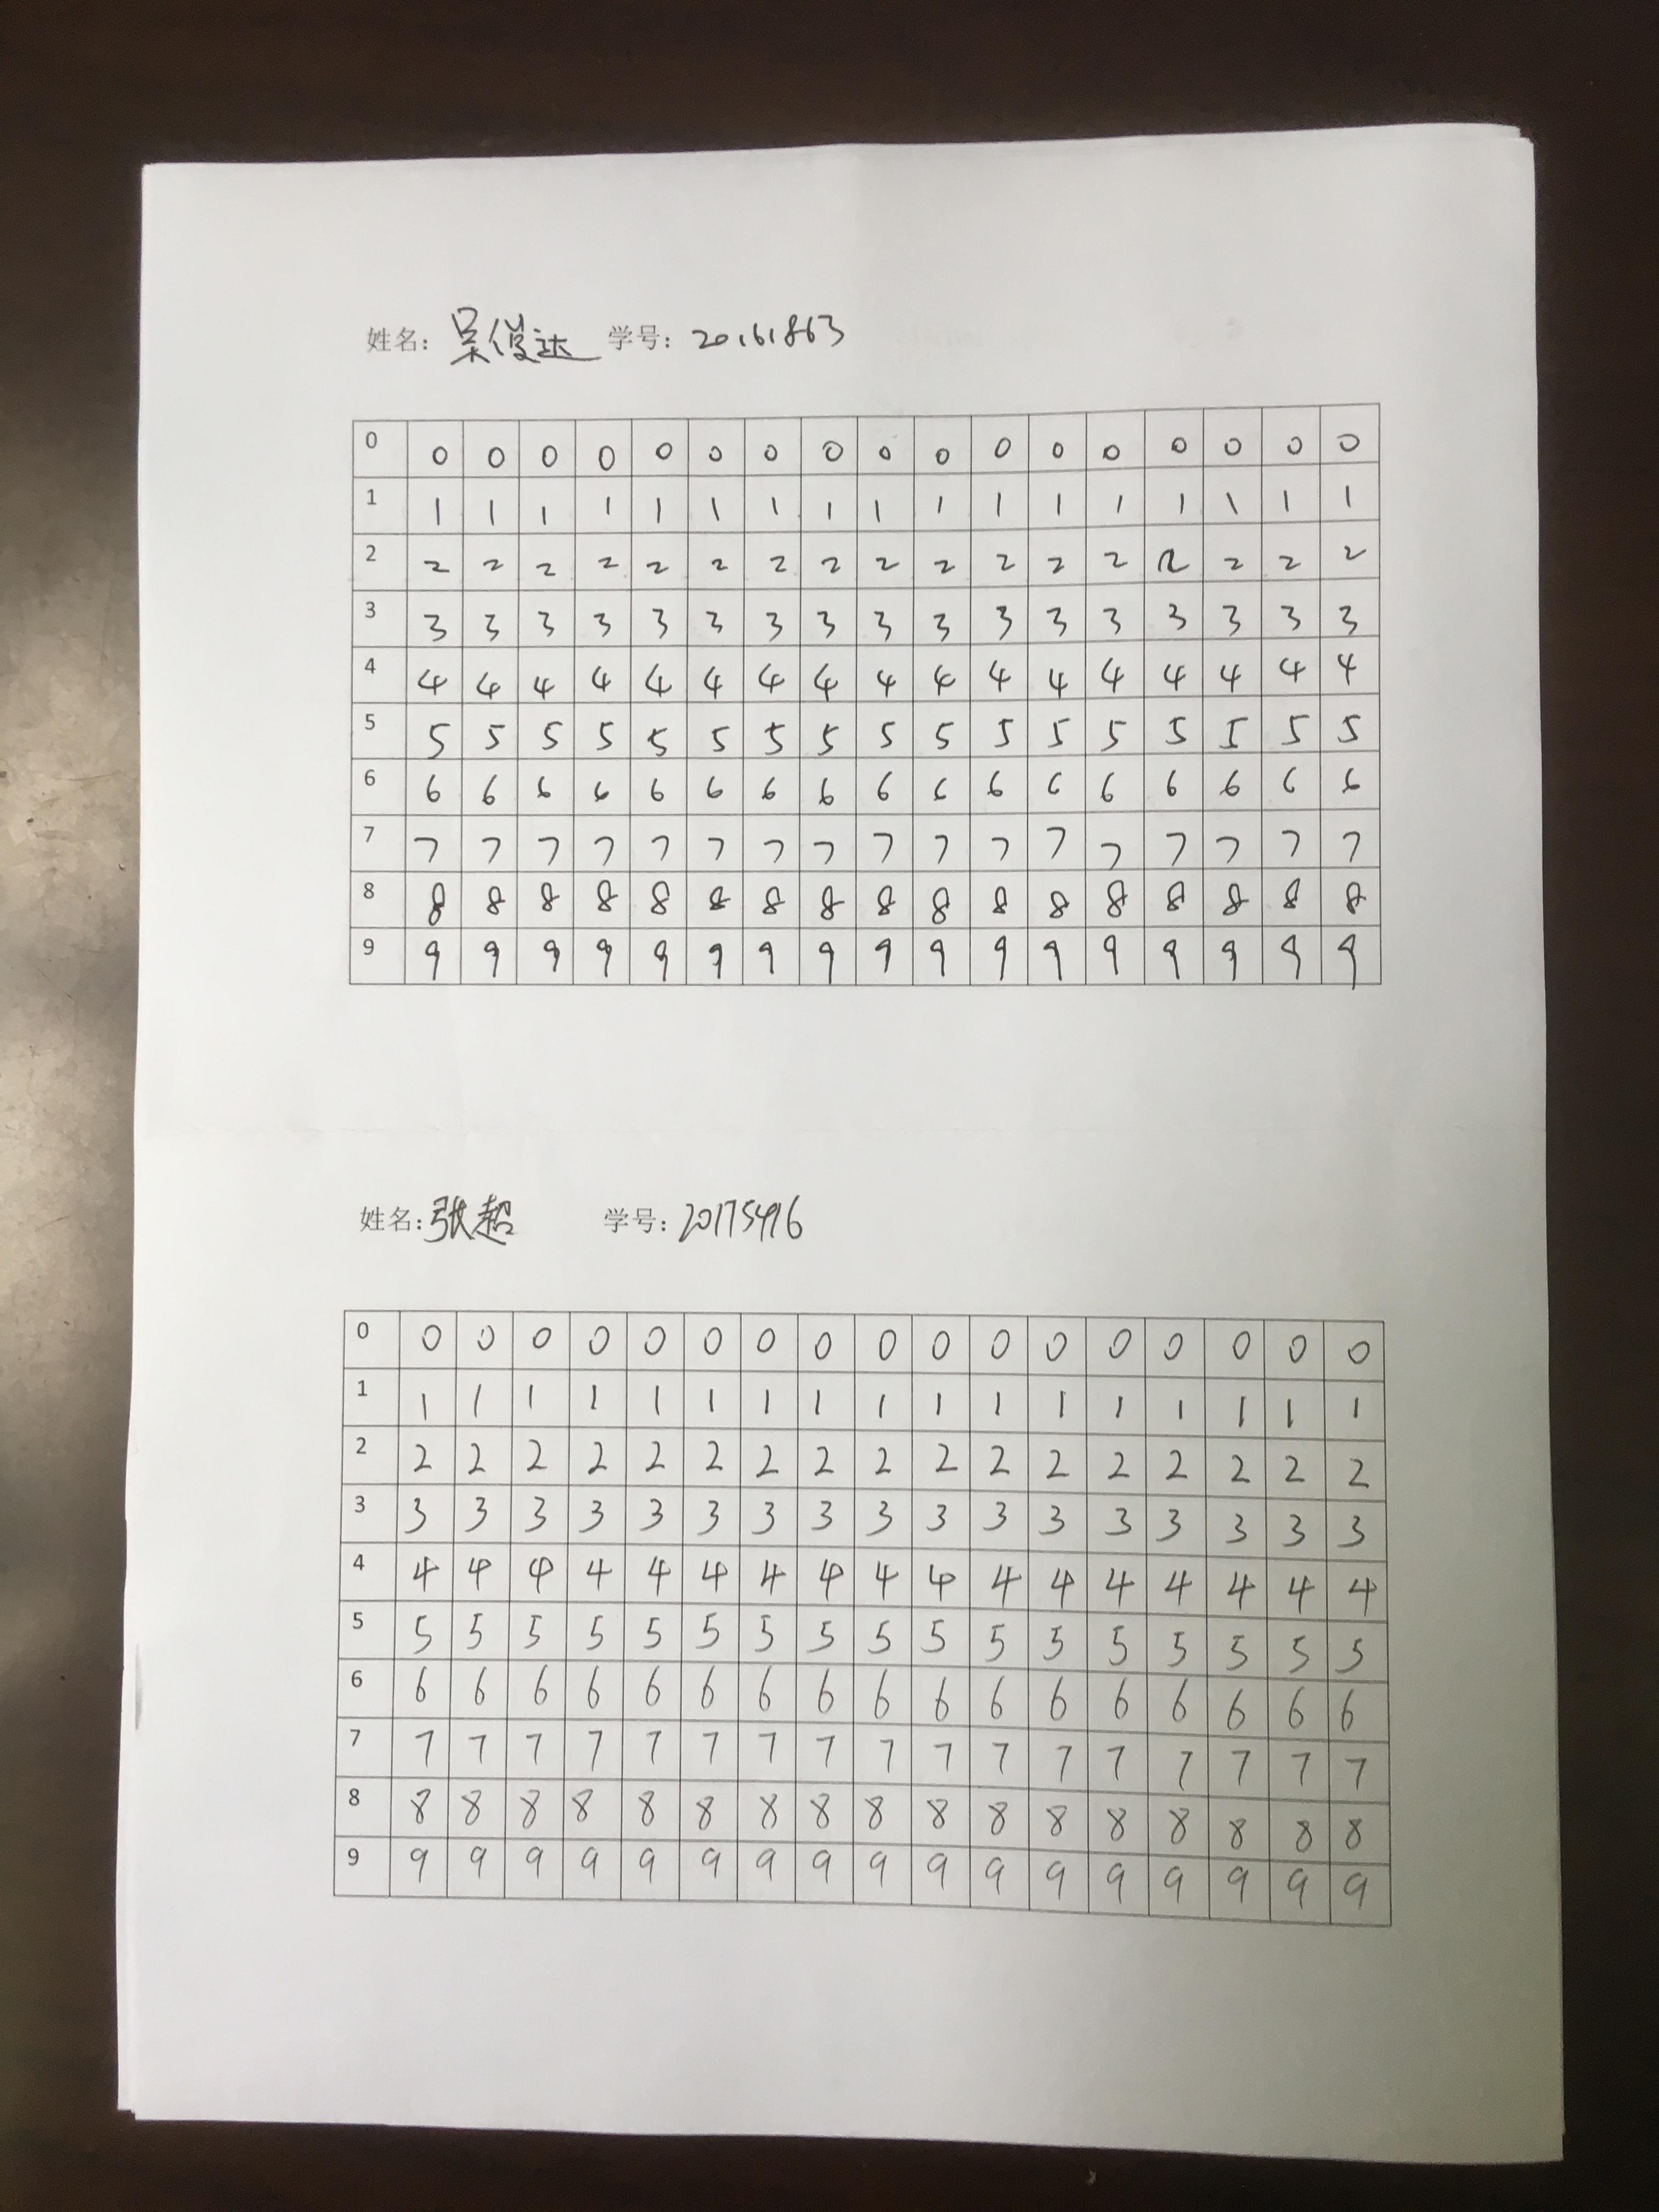 姓名：吴俊达 学号：20161863
0 0 0 0 0 0 0 0 0 0 0 0 0 0 0 0 0 0
1 1 1 1 1 1 1 1 1 1 1 1 1 1 1 1 1 1
2 2 2 2 2 2 2 2 2 2 2 2 2 2 2 2 2 2
3 3 3 3 3 3 3 3 3 3 3 3 3 3 3 3 3 3
4 4 4 4 4 4 4 4 4 4 4 4 4 4 4 4 4 4
5 5 5 5 5 5 5 5 5 5 5 5 5 5 5 5 5 5
6 6 6 6 6 6 6 6 6 6 6 6 6 6 6 6 6 6
7 7 7 7 7 7 7 7 7 7 7 7 7 7 7 7 7 7
8 8 8 8 8 8 8 8 8 8 8 8 8 8 8 8 8 8
9 9 9 9 9 9 9 9 9 9 9 9 9 9 9 9 9 9
姓名：张超 学号：20175416
0 0 0 0 0 0 0 0 0 0 0 0 0 0 0 0 0 0
1 1 1 1 1 1 1 1 1 1 1 1 1 1 1 1 1 1
2 2 2 2 2 2 2 2 2 2 2 2 2 2 2 2 2 2
3 3 3 3 3 3 3 3 3 3 3 3 3 3 3 3 3 3
4 4 4 4 4 4 4 4 4 4 4 4 4 4 4 4 4 4
5 5 5 5 5 5 5 5 5 5 5 5 5 5 5 5 5 5
6 6 6 6 6 6 6 6 6 6 6 6 6 6 6 6 6 6
7 7 7 7 7 7 7 7 7 7 7 7 7 7 7 7 7 7
8 8 8 8 8 8 8 8 8 8 8 8 8 8 8 8 8 8
9 9 9 9 9 9 9 9 9 9 9 9 9 9 9 9 9 9